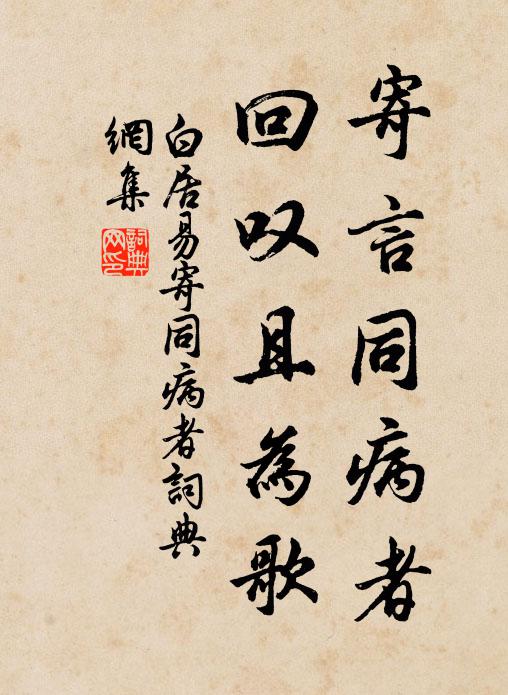 寄言同病者
回叹且為歌
白居易寄同病者詞典
網集
詞典
网印